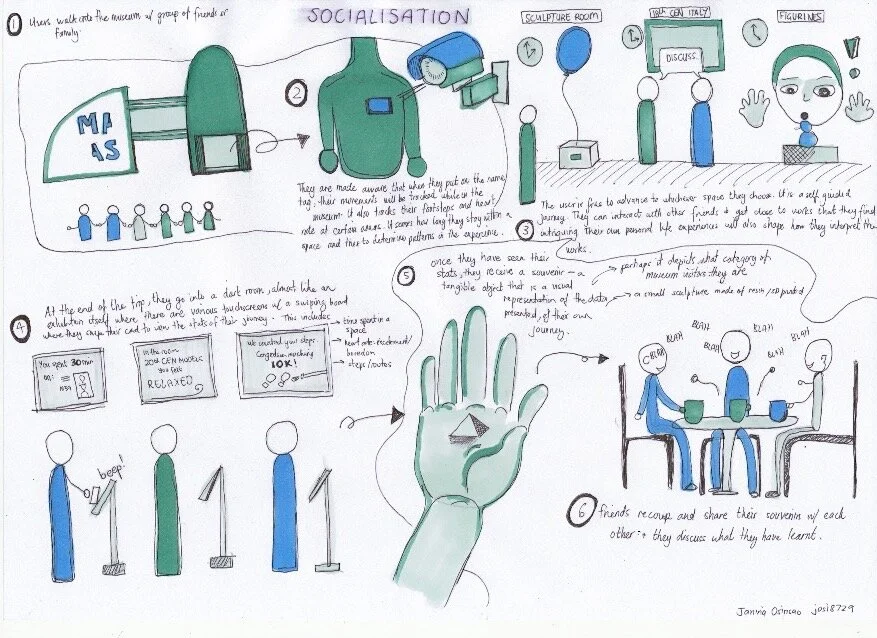 SOCIALISATION
1
Users walk into the museum w/ group of friends or
family.
MA
AS
2
They are made aware that when they put on the name
tag, their movements will be tracked while in the
museum. It also tracks their footsteps and heart
rate at certain areas. It senses how long they stay within a
space and then to determine patterns in the experience.
SCULPTURE ROOM
18th CEN ITALY
FIGURINES
DISCUSS..
!
3
The user is free to advance to whichever space they choose. It is a self guided
journey. They can interact with other friends & get close to works that they find
intriguing. Their own personal life experiences will also shape how they interpret the
works.
4
At the end of the trip, they go into a dark room, almost like an
exhibition itself where there are various touchscreens w/ a swiping board
where they swipe their card to view the stats of their journey. This includes
time spent in a
space
heart rate: excitement/
boredom
steps/routes
You spent 30 min
In the room
20th CEN MODELS
you felt
RELAXED
We counted your steps.
Congrats on reaching
10K!
beep!
5
once they have seen their
stats, they receive a souvenir – a
tangible object that is a visual
representation of the data
presented, of their own
journey.
perhaps it depicts what category of
museum visitors they are
a small sculpture made of resin/3D printed
BLAH
BLAH
BLAH
BLAH
BLAH
6
friends recoup and share their souvenirs w/ each
other → they discuss what they have learnt.
josi8729